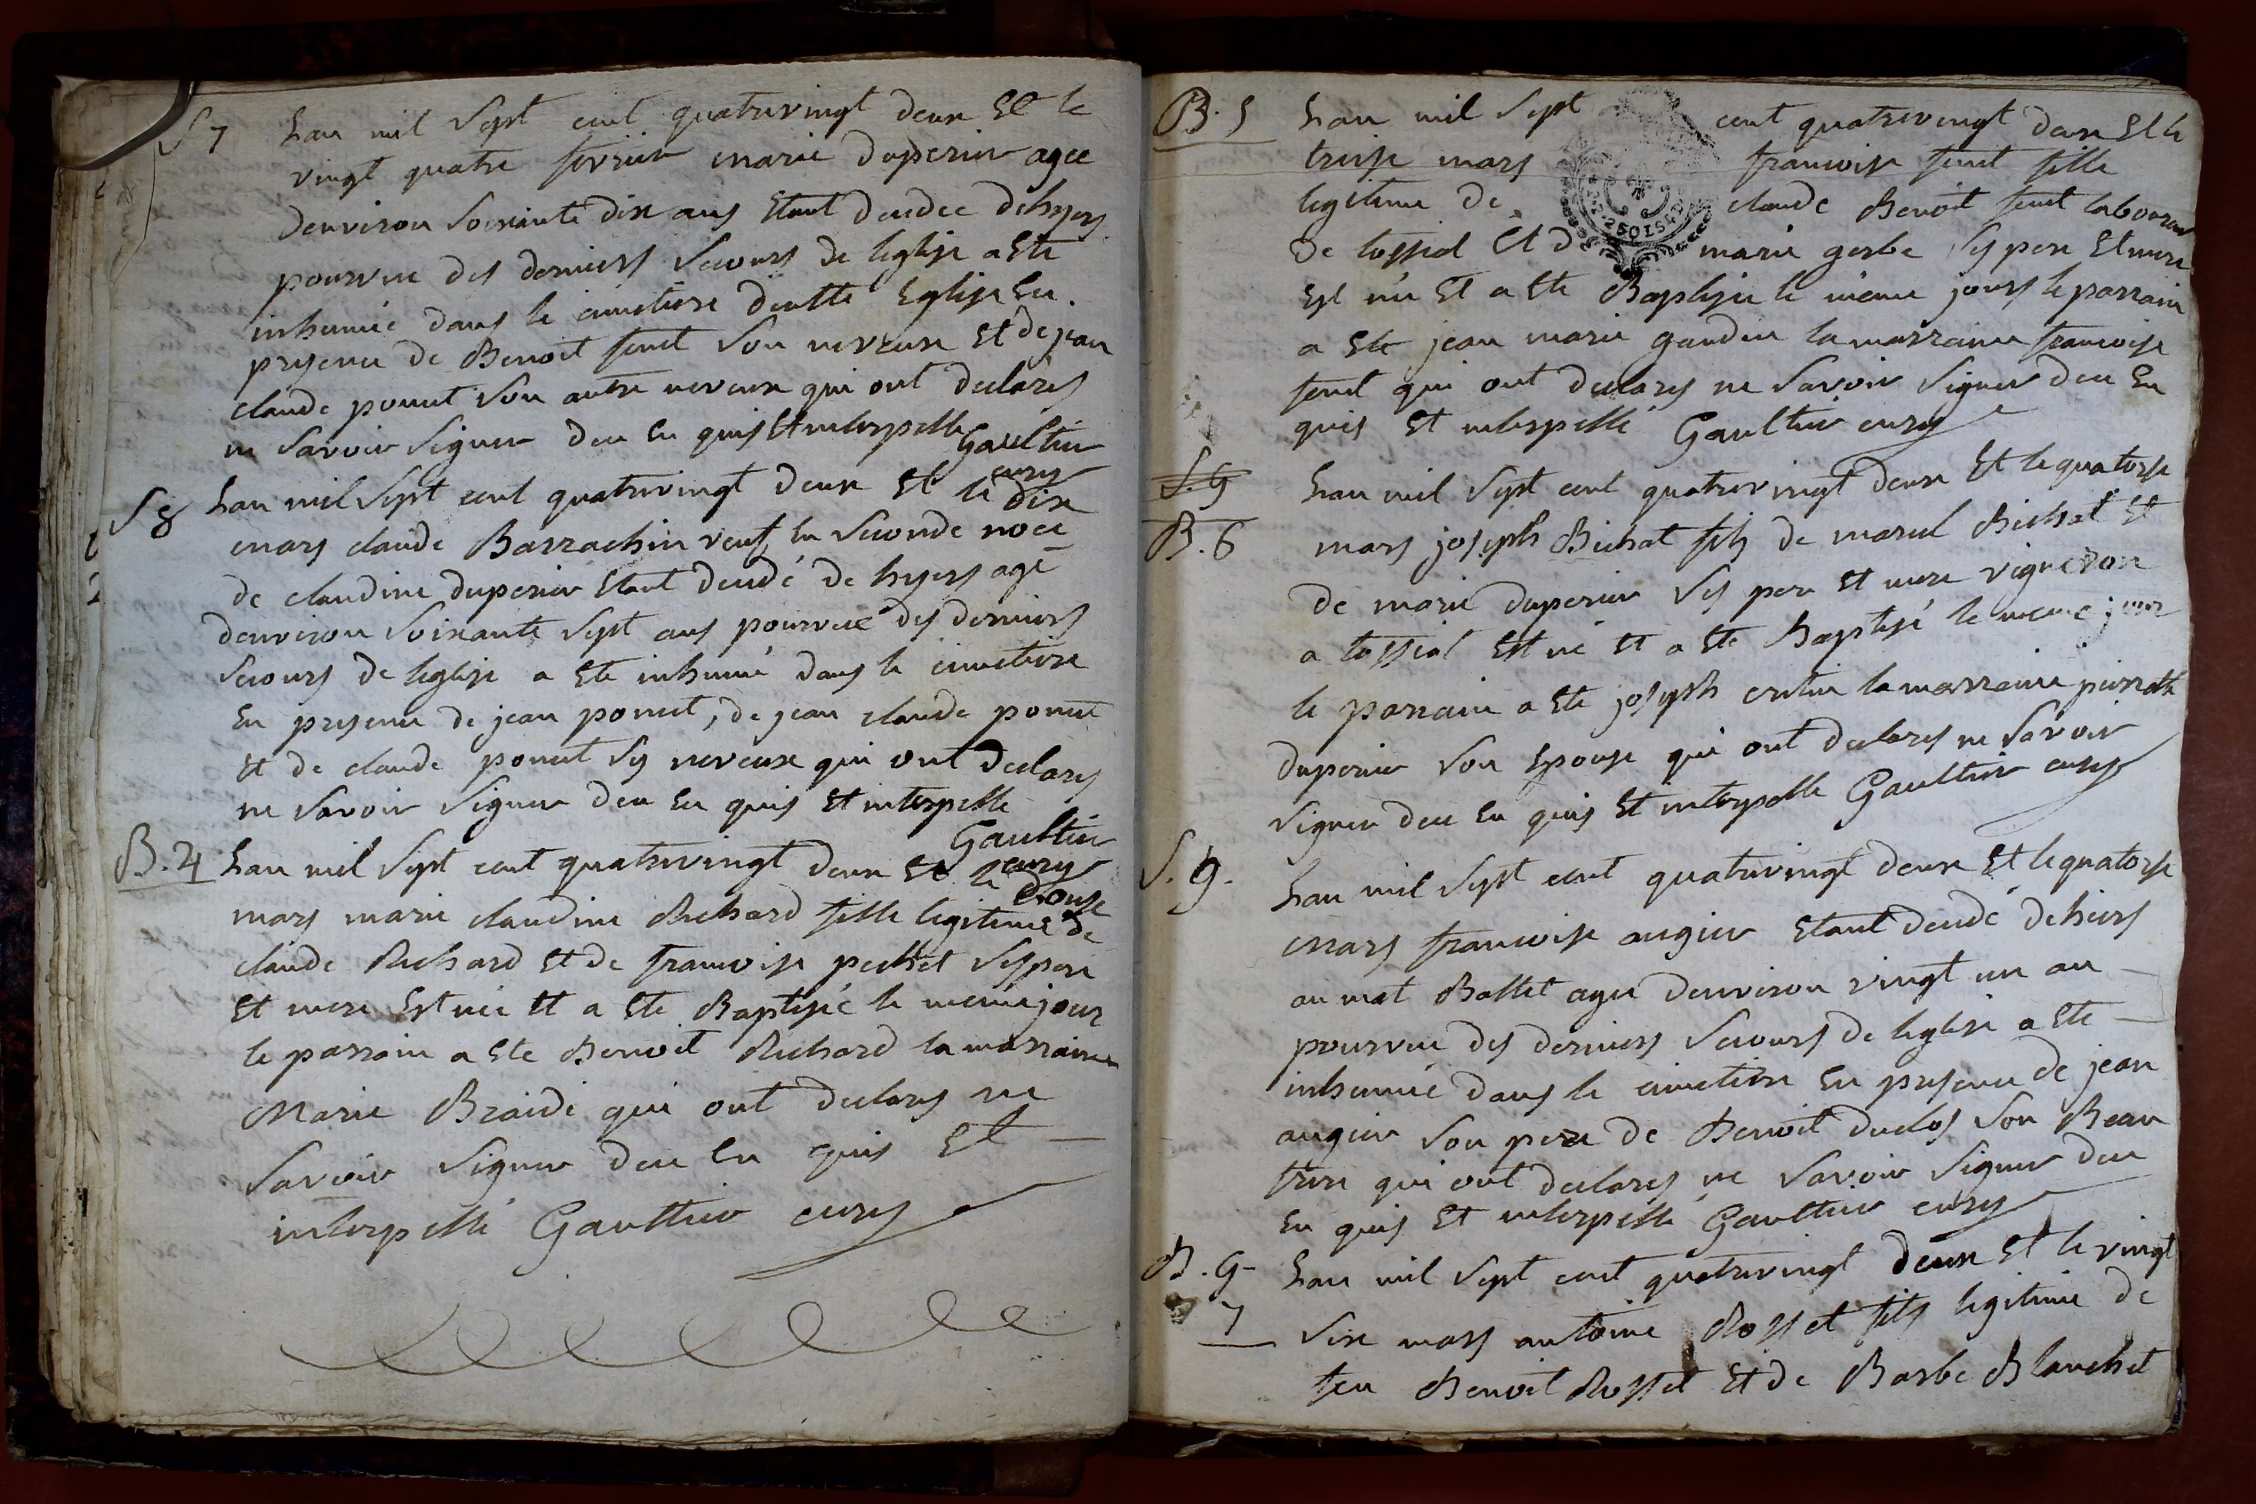 S 7
Lan mil Sept cent quatrevingt deux Et le
vingt quatre fevrier marie duperier agee
denviron soixante dix ans Etant deudee dehyers
pourvue des derniers Secours de leglise a Ete
inhumée dans le cimetiere deutte Eglise En
presence de Benoit fenet son neveux Et de jean
claude ponnet son autre neveux qui ont declarés
ne Savoir Signer deu En quis Et interpellé Gaultier
curé
S 8
Lan mil Sept cent quatrevingt deux Et le dix
mars claude Barrachin veuf En Seconde noce
de claudine duperier Etant deudé de hyers agé
denviron Soixante Sept ans pourveu des derniers
Secours de leglise a Ete inhumé dans le cimetiere
En presence de jean ponnet, de jean claude ponnet
Et de claude ponnet Ses neveux qui ont declarés
ne Savoir Signer deu En quis Et interpellé
Gaultier
curé
B. 4
Lan mil Sept cent quatrevingt deux Et le douse
mars marie claudine Richard fille legitime de
claude Richard Et de francoise pechet Ses pere
Et mere Est née Et a Ete Baptisée le meme jour
le parrain a Ete Benoit Richard la marraine
Marie Braidi qui ont declarés ne
Savoir Signer deu En quis Et
interpellé Gaultier curé
B. 5
Lan mil Sept cent quatrevingt deux Et le
treise mars francoise fenet fille
legitime de claude Benoit fenet laboureur
De tossiat Et d marie gerbe Ses pere Et mere
Est née Et a Ete Baptisée le meme jours le parrain
a Ete jean marie gandin la marraine francoise
fenet qui ont declarés ne Savoir Signer deu En
quis Et interpellé Gaultier curé
S. 9
B. 6
Lan mil Sept cent quatrevingt deux Et le quatorse
mars joseph Bichat fils de marcel Bichat Et
de marie duperier Ses pere Et mere vigneron
a tossiat Est né Et a Ete Baptisé le meme jour
le parrain a Ete joseph la marraine pierrette
duperier son Epouse qui ont declarés ne Savoir
Signer deu En quis Et interpellé Gaultier curé
S. 9.
Lan mil Sept cent quatrevingt deux Et le quatorse
mars francoise augier Etant deudé dehiers
au mat Ballet agée denviron vingt un an
pourvue des derniers Secours de leglise a Ete
inhumée dans le cimetiere En presence de jean
augier Son pere de Benoit duclos Son Beau
frere qui ont declarés ne Savoir Signer deu
En quis Et interpellé Gaultier curé
B. 9
7
Lan mil Sept cent quatrevingt deux Et le vingt
Six mars antoine Rosset fils legitime de
feu Benoit Rosset Et de Barbe Blanchet